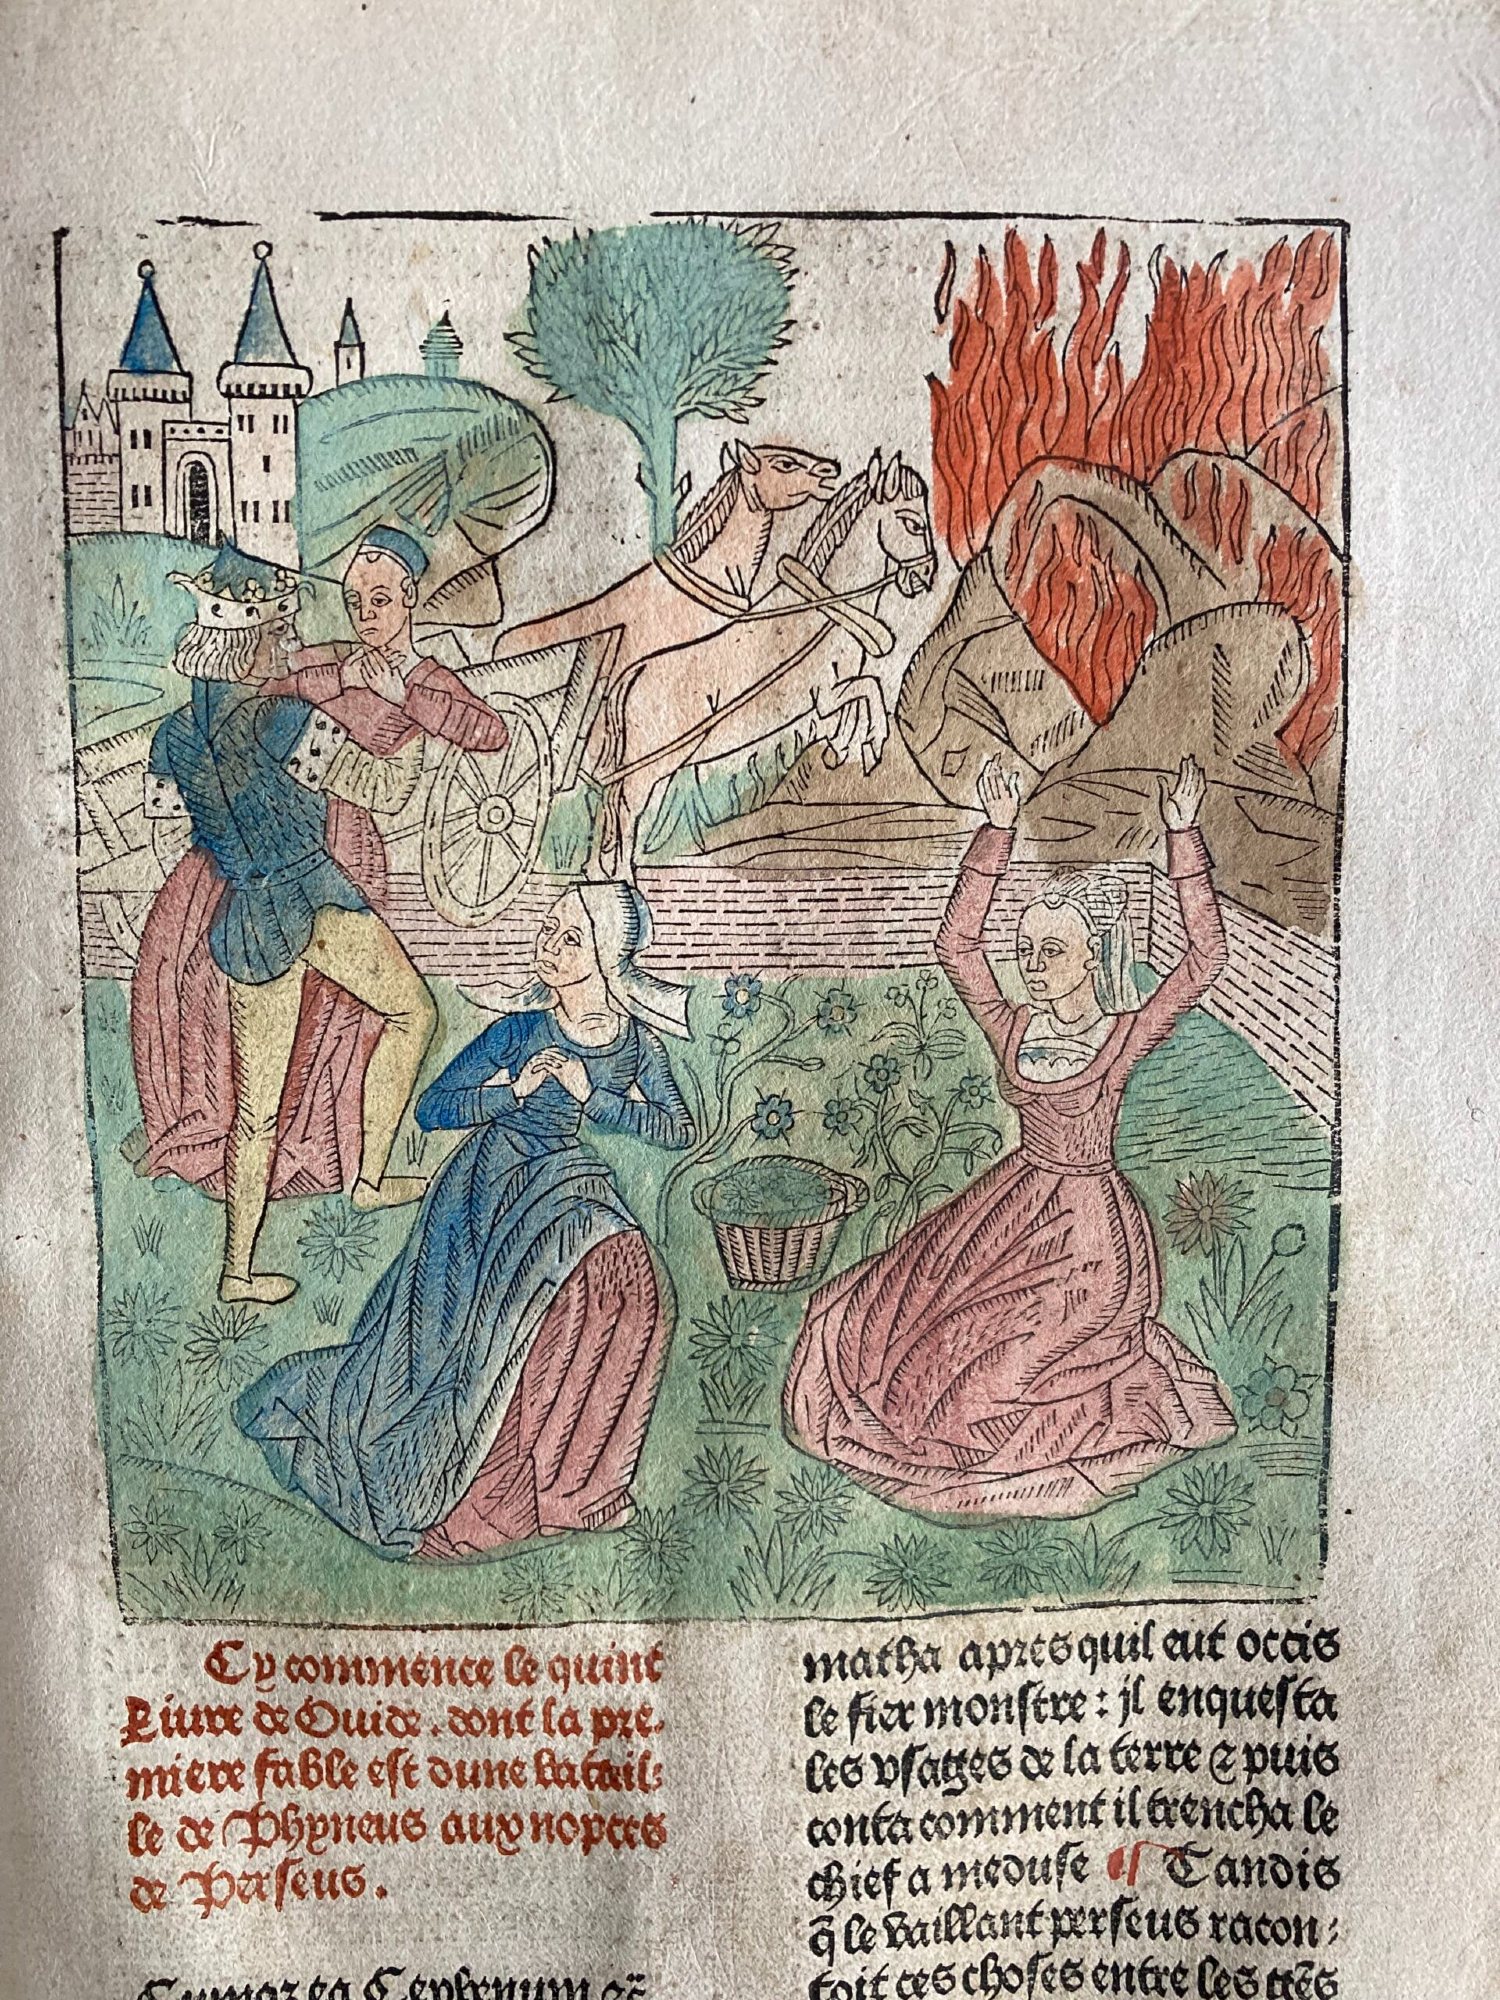 Cy commence le quint
Liure de Ouide. dont la pre-
miere fable est dune batail-
le de Phyneus aux nopces
de Perseus.
matha apres quil eut occis
le fier monstre: il enquesta
les vsages de la terre ⁊ puis
conta comment il trencha le
chief a meduse ¶ Tandis
q̄ le vaillant perseus racon-
toit ces choses entre les gēs